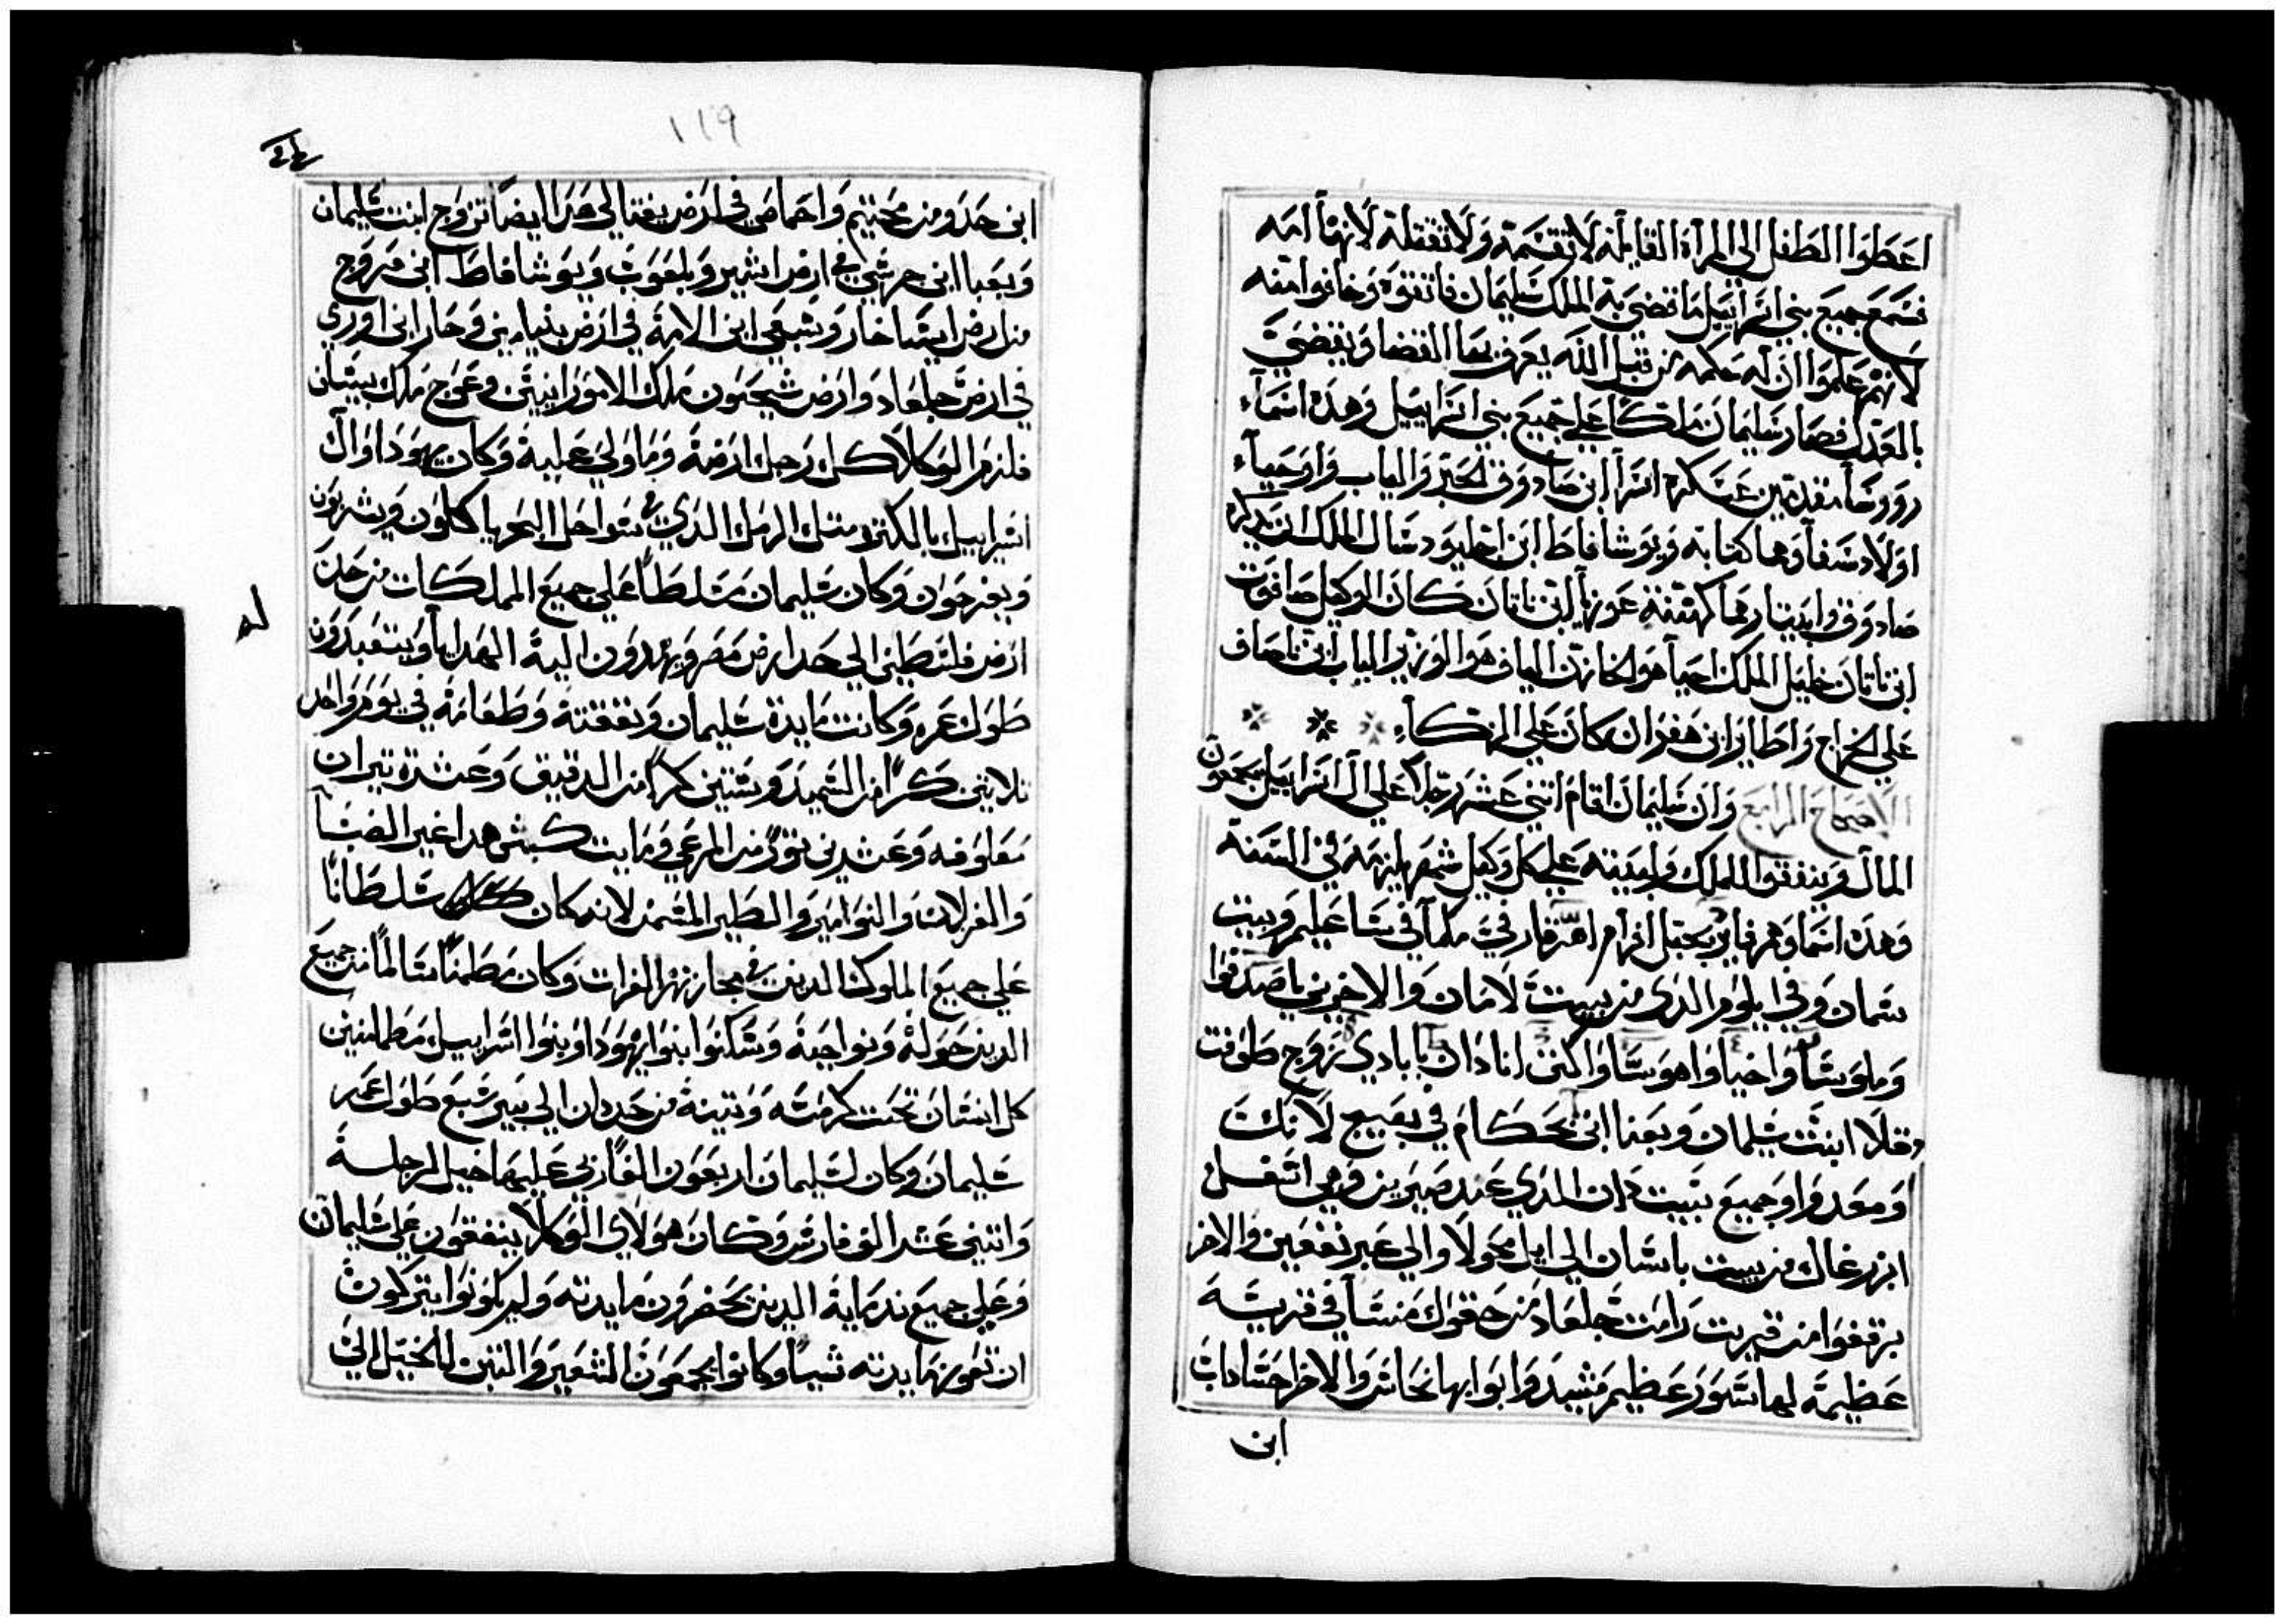 اعطوا الطفل الى المراة القايلة لا تقسمة ولا تقتلة لانها امه
فسمع جميع بني اسراييل ما قضى به الملك سليمان فاتقوه وخافوا منه
لانهم علموا ان له حكمه من قبل الله يعرف بها القضا ويقضي
بالعدل فصار سليمان ملكا على جميع بني اسراييل وهذه اسماء
روؤسا مقدمين عسكره ازرا ابن صادوق الحبر والياب واوحياء
اولاد شفا وهما كتابه ويوشافاط ابن احيلود شال الملك ان يذكره
صادوق وابيتار هما كهنته عوزيا ابن ناتان كان الوكيل صافوت
ابن ناتان خليل الملك احيا هو الخازن الياف هو الوزير الياب ابن ناصاف
على الخراج واطايرام ابن هفدان كان على الزكاء
الاصحاح الرابع وان سليمان اقام اثني عشر رجلا على ال اسراييل يجمعون
المال وينفقوا للملك ولبيته على كل وكيل شهر يلزمه في السنه
وهذه اسماوهم فاين بجبل افرام فار في ملما في شاعليم وبيت
شمان وفي ايلوم الذى من بيت لامان والاخر بني ناصد فوا
وملوشا واخيا واهو شا واكنن انادان بابادي تزوج طوفت
وقلا ابنت سليمان وبعنا ابن يحكام في بقيبع لانك
ومعدوا وجميع ببيت دان الذي عند صيرين وهي اشفل
ابزرغال من بيت باشان الي ايل محولا والي عبر نقفين والاخر
برقفوا من قريت رامت جلعاد من حقول منشا في قريشه
عظيمة لها سور عظيم مشيد وابوابها نحاس والاخر احشاداب
ابن
١١٩
ابن حدو من محنيم واحماصي في ارض يفتالي هذا ايضا تزوج ابنت سليمان
وبعبا ابن حرشي في ارض اشير وبلعوت ويوشافاط ابن فروج
من ارض ايساخار وشمعي ابن الامة في ارض بنيامين وحار ابن اوري
في ارض جلعاد وارض شيحون ملك الامورانيين وعوج ملك بيسان
فلزم الوكلا كل رجل ارضة وما ولي علية وكان يهودا وال
اسراييل بالكثره مثل الرمل الذي في سواحل البحر ياكلون ويشربون
ويفرحون وكان سليمان متسلطا على جميع المملكات من حد
ارض فلسطين الى حد ارض مصر ويهدون الية الهدايا ويتعبدون
طول عمره وكانت مايدة سليمان ونفقتة وطعامة في يوم واحد
ثلاثين كرا من السميد وستين كرا من الدقيق وعشرة تيران
معلوفه وعشرين ثور من المرعي ومايت كبش هدا غير الضبا
والغزلان والنوامير والطير المسمن لانه كان سلطانا
على جميع الملوك الذين في مجاز نهر الفرات وكان مطمنا سالما من جميع
الذين حولة ونواحية وسكنوا بنوا يهودا وبنوا اسراييل مطمانين
كل انسان تحت كرمته وتينة من حد دان الى بير سبع طول عمر
سليمان وكان لسليمان اربعون الف اري عليها خيل لرجلسة
واثني عشر الف فارس وكان هولاي الوكلا ينفقون على سليمان
وعلى جميع ندماية الذين يحضرون مايدته ولم يكونوا يتركون
ان تعوز مايدته شيا وكانوا يجمعون الشعير والتبن للخيل الى